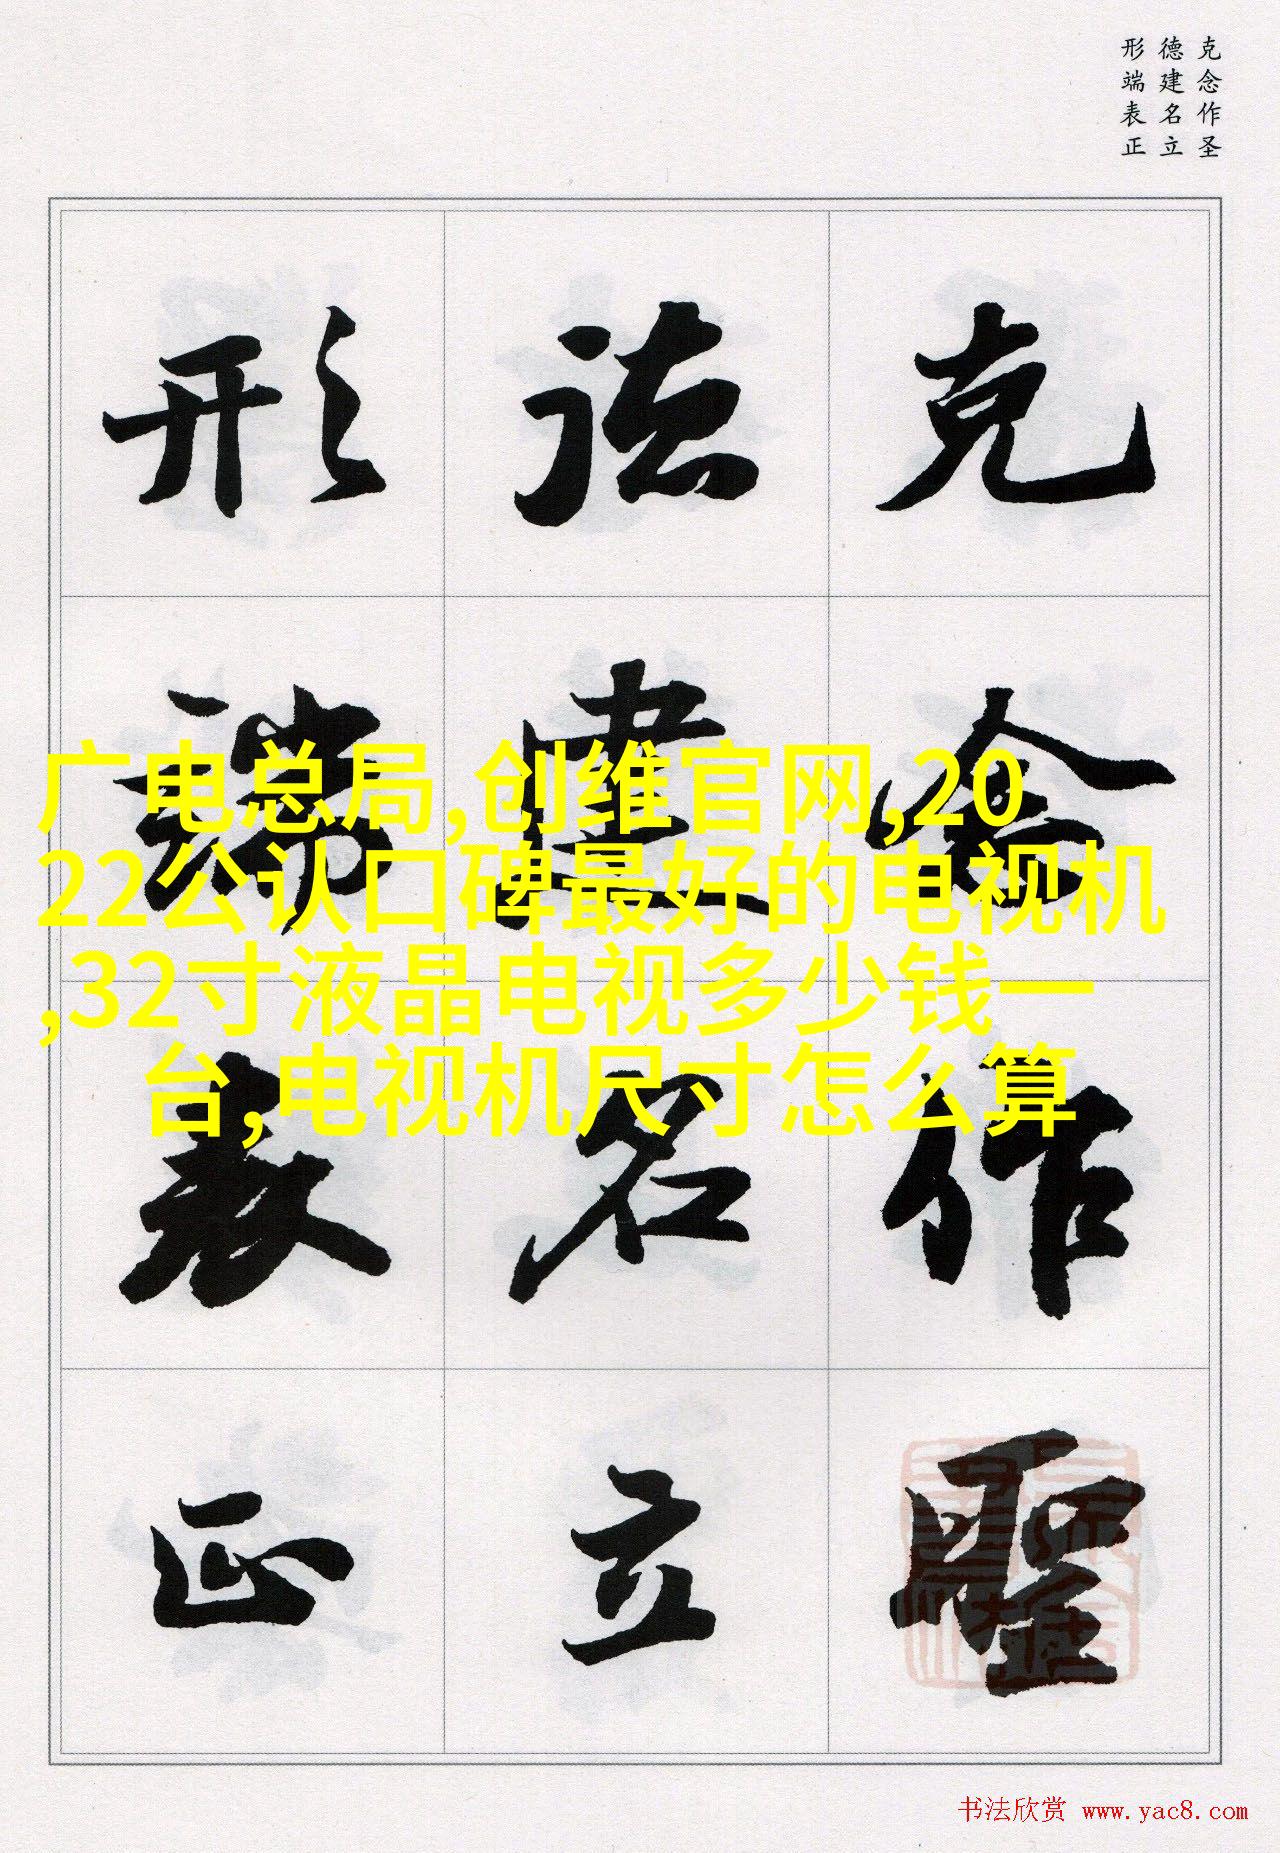 克念作圣
德建名立
形端表正
克念作聖
德建名立
形端表正
广电总局,创维官网,20
22公认口碑最好的电视机
,32寸液晶电视多少钱一
台,电视机尺寸怎么算
书法欣赏 www.yac8.com